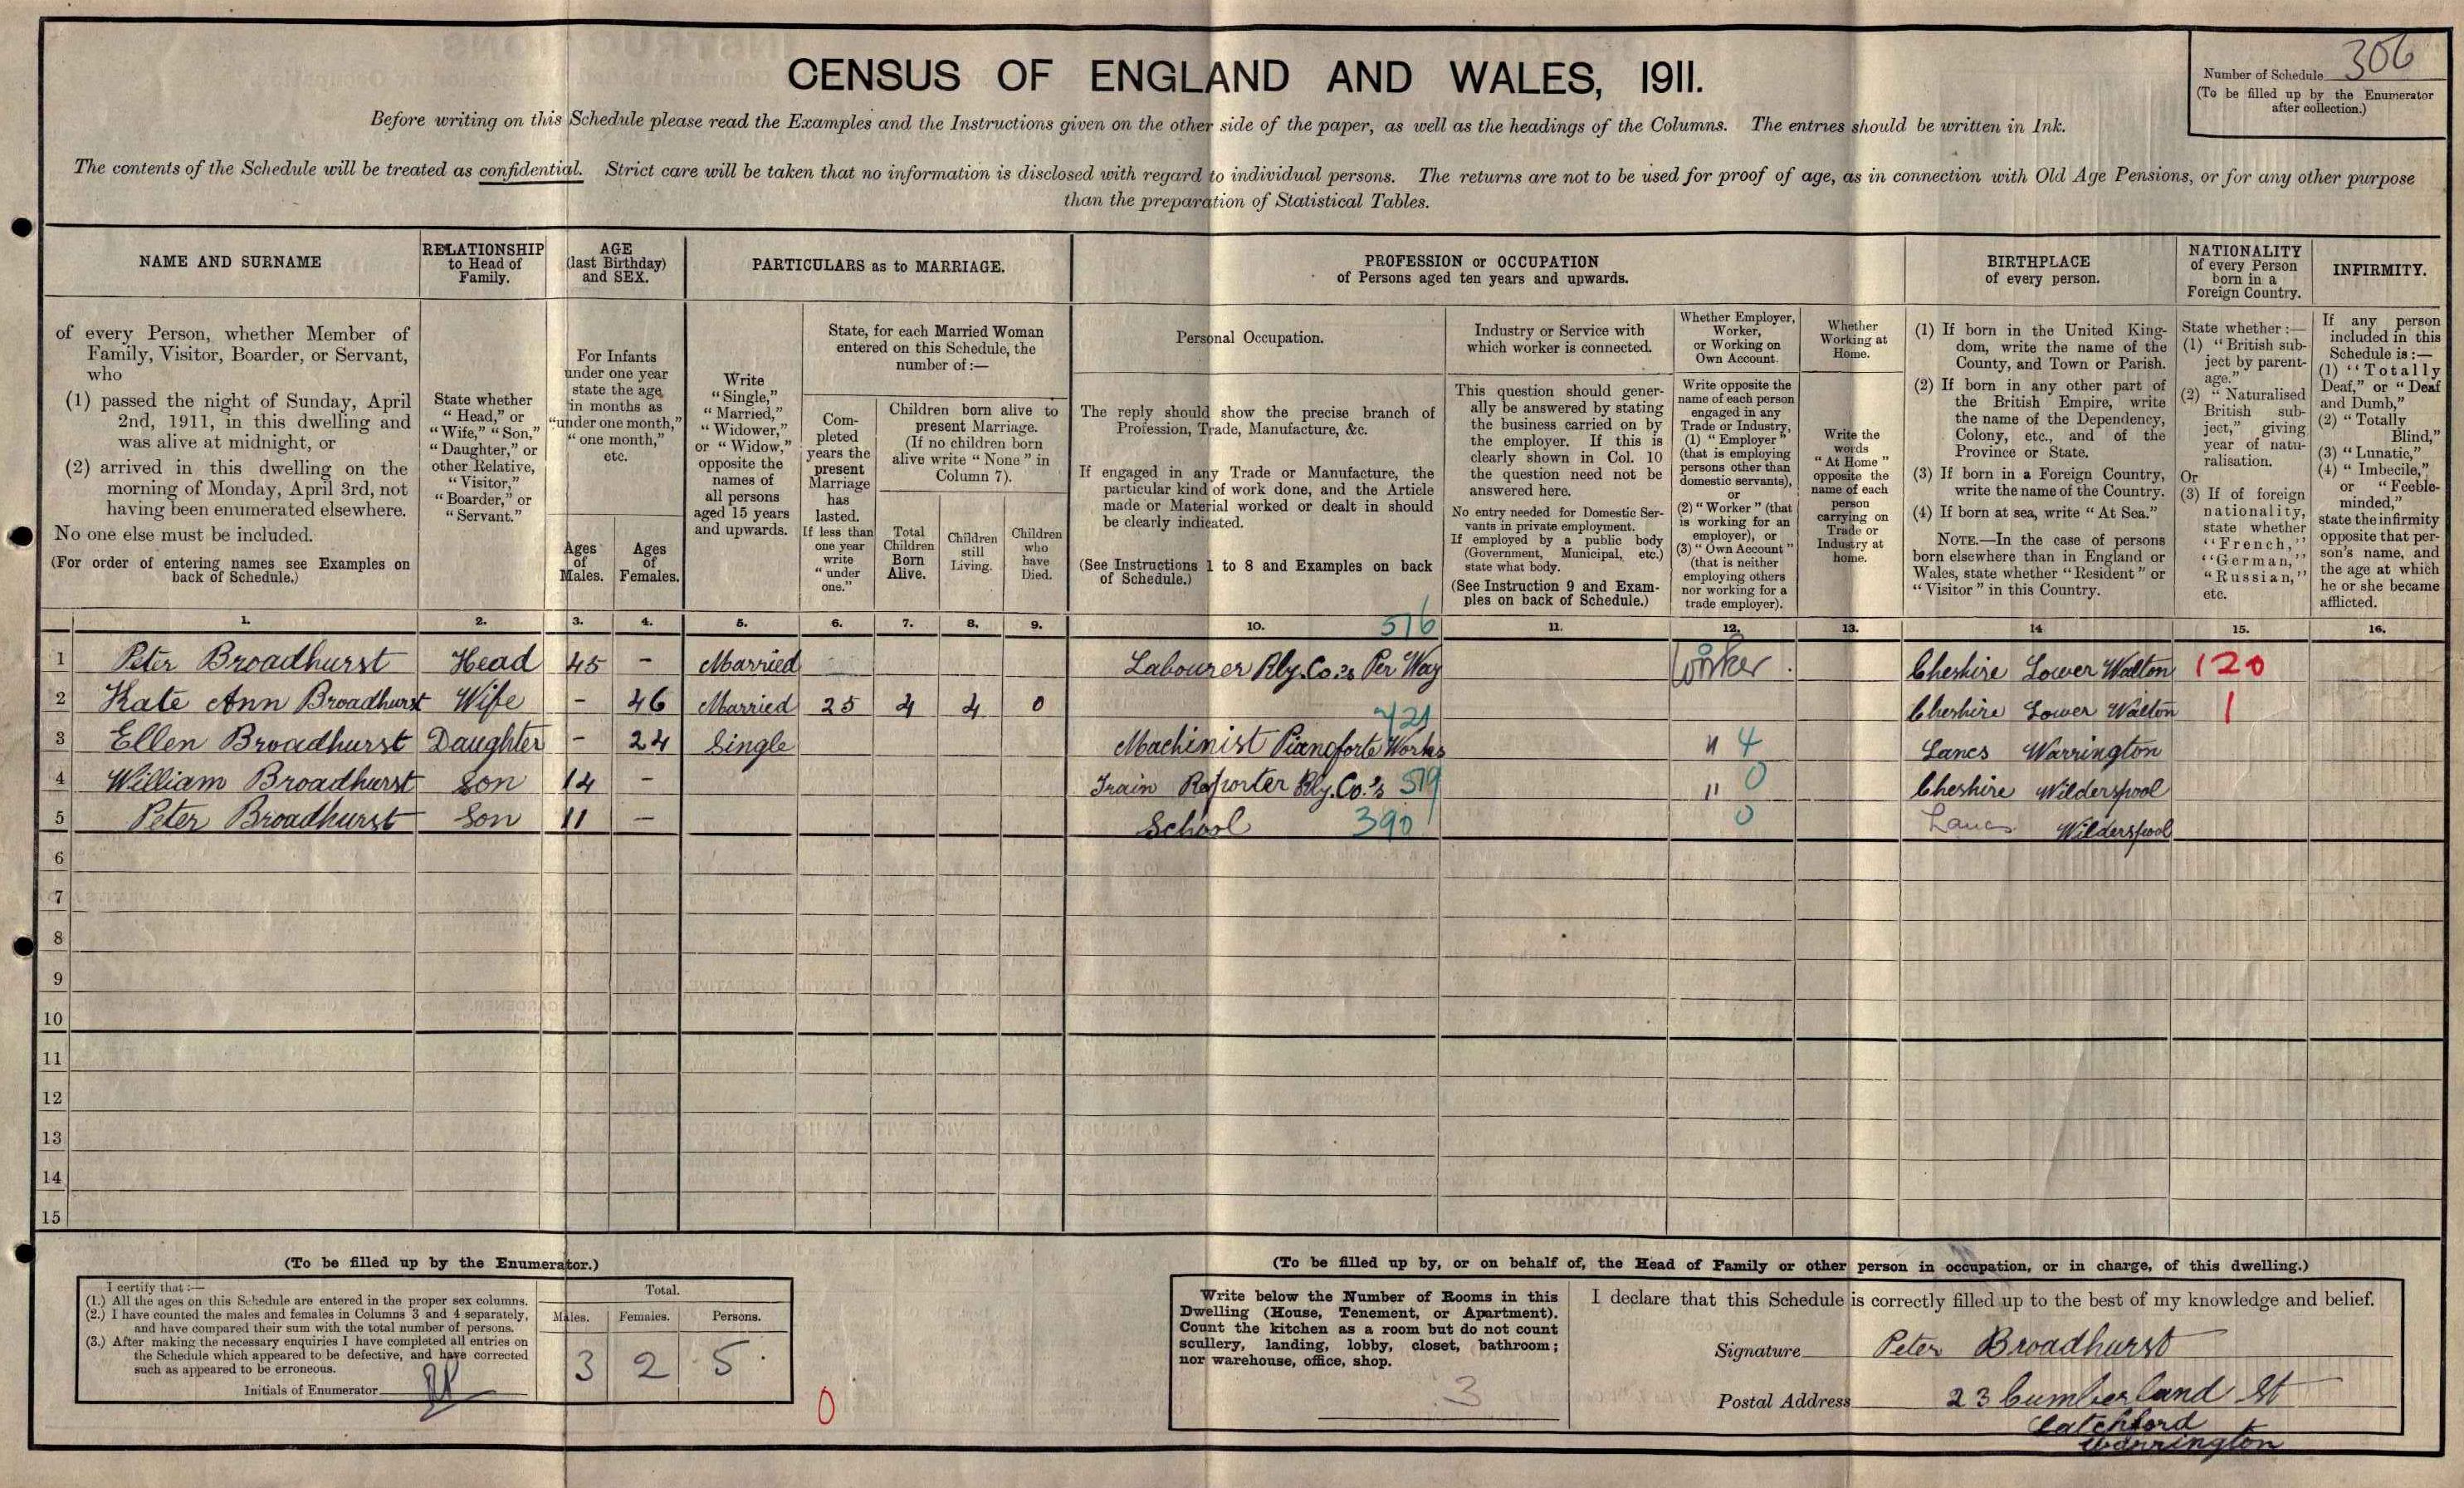 CENSUS OF ENGLAND AND WALES, 1911.
Number of Schedule 306
(To be filled up by the Enumerator
after collection.)
Before writing on this Schedule please read the Examples and the Instructions given on the other side of the paper, as well as the headings of the Columns. The entries should be written in Ink.
The contents of the Schedule will be treated as confidential. Strict care will be taken that no information is disclosed with regard to individual persons. The returns are not to be used for proof of age, as in connection with Old Age Pensions, or for any other purpose
than the preparation of Statistical Tables.
NAME AND SURNAME
of every Person, whether Member of
Family, Visitor, Boarder, or Servant,
who
(1) passed the night of Sunday, April
2nd, 1911, in this dwelling and
was alive at midnight, or
(2) arrived in this dwelling on the
morning of Monday, April 3rd, not
having been enumerated elsewhere.
No one else must be included.
(For order of entering names see Examples on
back of Schedule.)
RELATIONSHIP
to Head of
Family.
State whether
"Head," or
"Wife," "Son,"
"Daughter," or
other Relative,
"Visitor,"
"Boarder," or
"Servant."
AGE
(last Birthday)
and SEX.
For Infants
under one year
state the age
in months as
"under one month,"
"one month,"
etc.
Ages
of
Males.
Ages
of
Females.
PARTICULARS as to MARRIAGE.
Write
"Single,"
"Married,"
"Widower,"
or "Widow,"
opposite the
names of
all persons
aged 15 years
and upwards.
State, for each Married Woman
entered on this Schedule, the
number of:—
Com-
pleted
years the
present
Marriage
has
lasted.
If less than
one year
write
"under
one."
Children born alive to
present Marriage.
(If no children born
alive write "None" in
Column 7).
Total
Children
Born
Alive.
Children
still
Living.
Children
who
have
Died.
PROFESSION or OCCUPATION
of Persons aged ten years and upwards.
Personal Occupation.
The reply should show the precise branch of
Profession, Trade, Manufacture, &c.
If engaged in any Trade or Manufacture, the
particular kind of work done, and the Article
made or Material worked or dealt in should
be clearly indicated.
(See Instructions 1 to 8 and Examples on back
of Schedule.)
Industry or Service with
which worker is connected.
This question should gener-
ally be answered by stating
the business carried on by
the employer. If this is
clearly shown in Col. 10
the question need not be
answered here.
No entry needed for Domestic Ser-
vants in private employment.
If employed by a public body
(Government, Municipal, etc.)
state what body.
(See Instruction 9 and Exam-
ples on back of Schedule.)
Whether Employer,
Worker,
or Working on
Own Account.
Write opposite the
name of each person
engaged in any
Trade or Industry,
(1) "Employer"
(that is employing
persons other than
domestic servants),
or
(2) "Worker" (that
is working for an
employer), or
(3) "Own Account"
(that is neither
employing others
nor working for a
trade employer).
Whether
Working at
Home.
Write the
words
"At Home"
opposite the
name of each
person
carrying on
Trade or
Industry at
home.
BIRTHPLACE
of every person.
(1) If born in the United King-
dom, write the name of the
County, and Town or Parish.
(2) If born in any other part of
the British Empire, write
the name of the Dependency,
Colony, etc., and of the
Province or State.
(3) If born in a Foreign Country,
write the name of the Country.
(4) If born at sea, write "At Sea."
NOTE.—In the case of persons
born elsewhere than in England or
Wales, state whether "Resident" or
"Visitor" in this Country.
NATIONALITY
of every Person
born in a
Foreign Country.
State whether:—
(1) "British sub-
ject by parent-
age."
(2) "Naturalised
British sub-
ject," giving
year of natu-
ralisation.
Or
(3) If of foreign
nationality,
state whether
"French,"
"German,"
"Russian,"
etc.
INFIRMITY.
If any person
included in this
Schedule is:—
(1) "Totally
Deaf," or "Deaf
and Dumb,"
(2) "Totally
Blind,"
(3) "Lunatic,"
(4) "Imbecile,"
or "Feeble-
minded,"
state the infirmity
opposite that per-
son's name, and
the age at which
he or she became
afflicted.
1. 2. 3. 4. 5. 6. 7. 8. 9. 10. 516 11. 12. 13. 14 15. 16.
1 Peter Broadhurst Head 45 - Married Labourer Rly. Co.'s Per Way Worker Cheshire Lower Walton 120
2 Kate Ann Broadhurst Wife - 46 Married 25 4 4 0 Cheshire Lower Walton 1
3 Ellen Broadhurst Daughter - 24 Single Machinist Pianoforte Works 421 " 4 Lancs Warrington
4 William Broadhurst Son 14 - Train Reporter Rly. Co.'s 519 " 0 Cheshire Wilderspool
5 Peter Broadhurst Son 11 - School 390 0 Lancs Wilderspool
6
7
8
9
10
11
12
13
14
15
(To be filled up by the Enumerator.)
I certify that:—
(1.) All the ages on this Schedule are entered in the proper sex columns.
(2.) I have counted the males and females in Columns 3 and 4 separately,
and have compared their sum with the total number of persons.
(3.) After making the necessary enquiries I have completed all entries on
the Schedule which appeared to be defective, and have corrected
such as appeared to be erroneous.
Initials of Enumerator
Total.
Males. Females. Persons.
3 2 5
0
(To be filled up by, or on behalf of, the Head of Family or other person in occupation, or in charge, of this dwelling.)
Write below the Number of Rooms in this
Dwelling (House, Tenement, or Apartment).
Count the kitchen as a room but do not count
scullery, landing, lobby, closet, bathroom;
nor warehouse, office, shop.
3
I declare that this Schedule is correctly filled up to the best of my knowledge and belief.
Signature Peter Broadhurst
Postal Address 23 Cumberland St
Latchford
Warrington